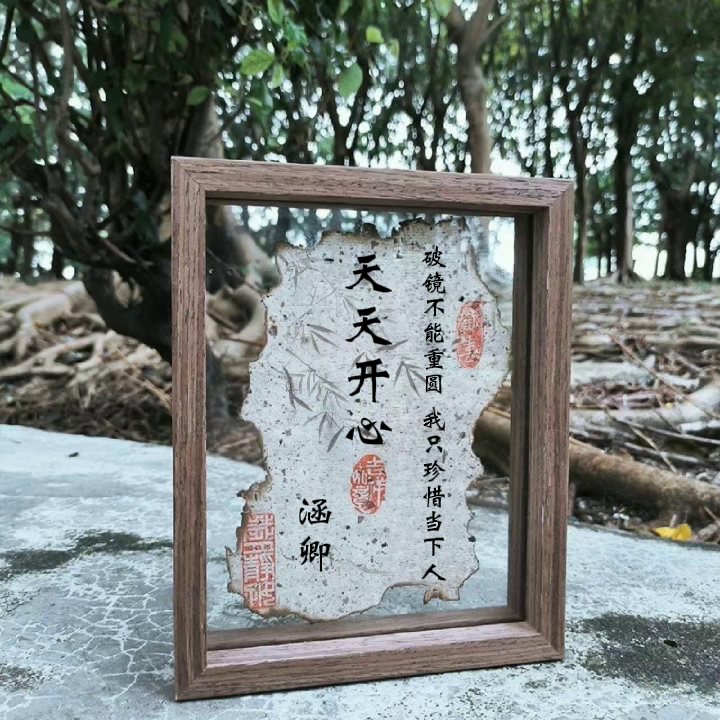 破镜不能重圆 我只珍惜当下人
天天开心
吉祥如意
涵卿